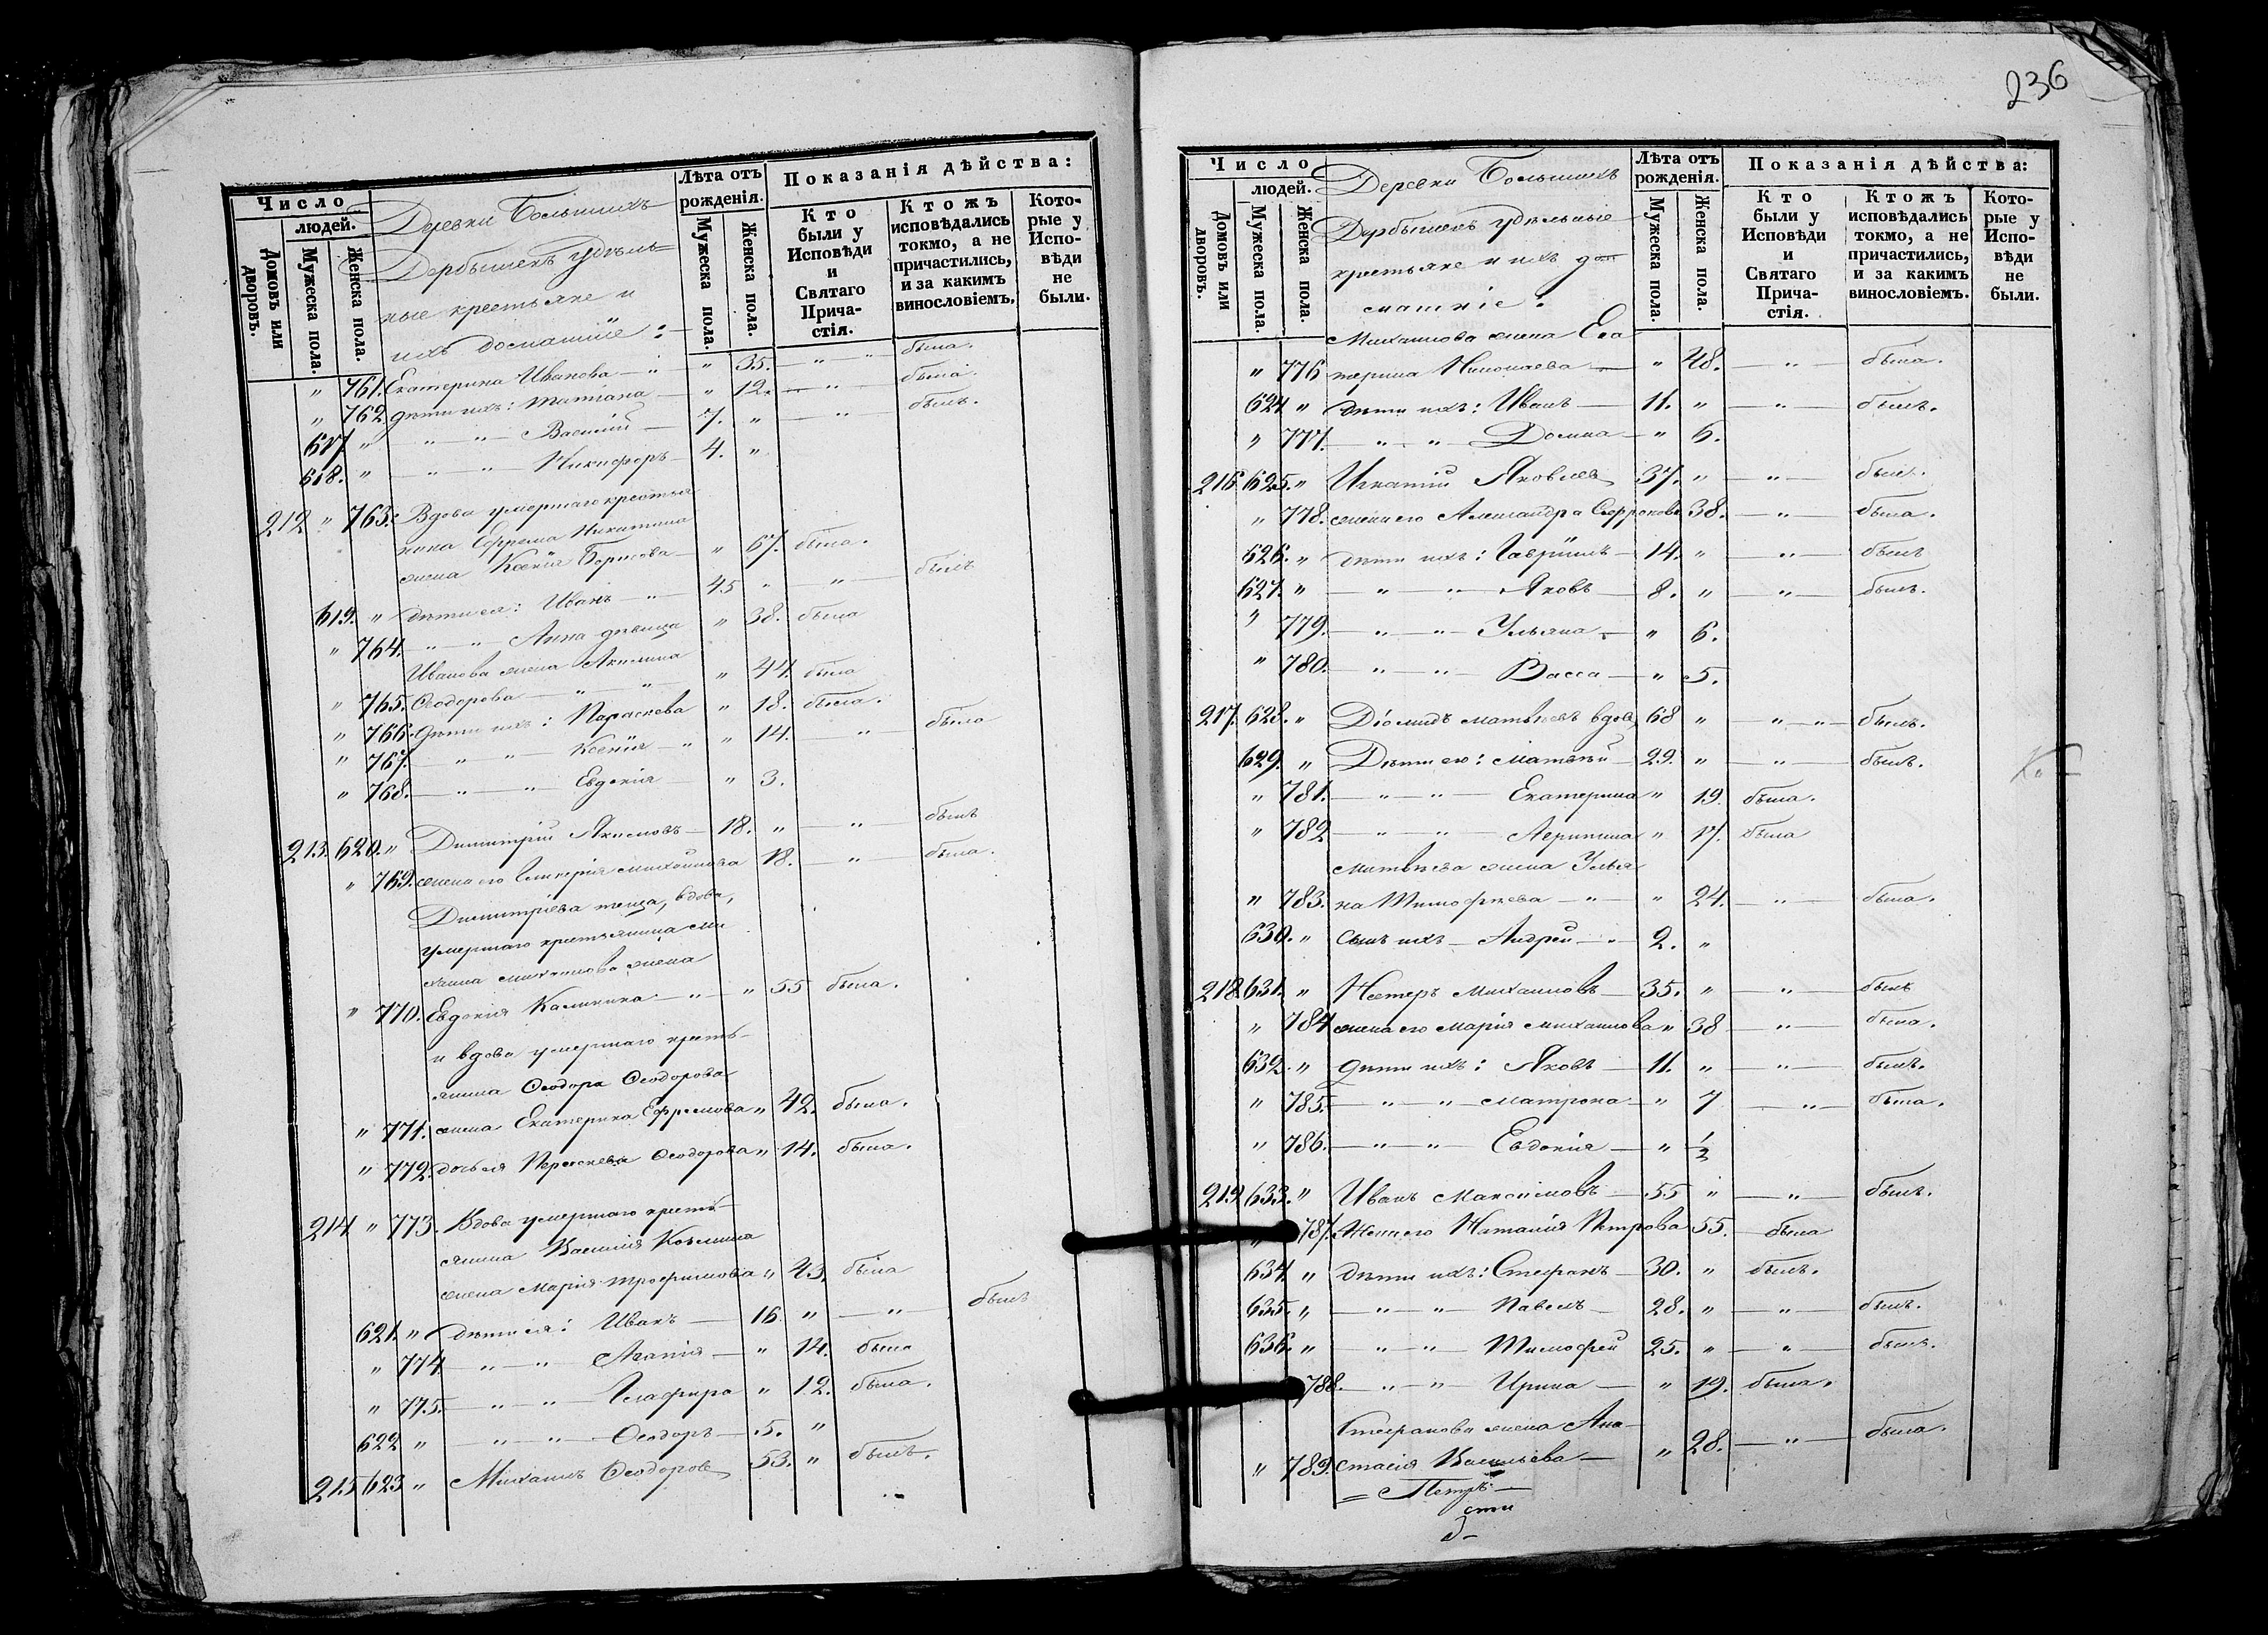 Число
людей.
Домовъ или дворовъ.
Мужеска пола.
Женска пола.
Деревни Большихъ
Дербышекъ удѣль-
ные крестьяне и
ихъ домашніе:
Лѣта отъ рожденія.
Мужеска пола.
Женска пола.
Показанія дѣйства:
Кто были у Исповѣди и Святаго Прича-стія.
Ктожъ исповѣдались токмо, а не причастились, и за какимъ винословіемъ.
Кото-рые у Испо-вѣди не были.
" 761. Екатерина Иванова — " — " 35. — " — " была.
" 762 дѣти ихъ: Татіана — " 12. — " — была.
617. " — " — " — Василій — 7. " — " — былъ.
618. " — " — " — Никифоръ — 4. "
212 " 763. Вдова умершаго крестья
нина Ефрема Никитина
жена Ксенія Борисова — " 67. была.
619. " дѣти ея: Иванъ — " — 45 " — " — былъ
" 764. — " — " Анна дѣвица " 38. была
Иванова жена Акилина
" 765. Ѳеодорова — " — " — " 44. была
" 766. дѣти ихъ: Параскева " 18. была.
" 767. — " — " — Ксенія — " " 14. " была
" 768. — " — " — Евдокія — " 3.
213. 620. " Димитрій Якимовъ — 18. " — " — былъ
" 769. жена его Гликерія Михайлова 18. — " — была.
Димитріева теща, вдова,
умершаго крестьянина Ми
хаила Михайлова жена
" 770. Евдокія Калинина — " — " 55 была.
и вдова умершаго кресть-
янина Ѳеодора Ѳеодорова
" 771. жена Екатерина Ефремова " 42. была.
" 772. дочь ея Параскева Ѳеодорова " 14. была.
214 " 773. Вдова умершаго кресть-
янина Василія Козьмина
жена Марія Трофимова " 43. была
621. " дѣти ея: Иванъ — 16. " — " — былъ
" 774 — " — " — Агапія — " 14. была
" 775. — " — " — Глафира " 12. была.
622 " — " — " — Ѳеодоръ — 5. "
215 623 " Михаилъ Ѳеодоровъ 53. " былъ.
236
Число
людей.
Домовъ или дворовъ.
Мужеска пола.
Женска пола.
Деревни Большихъ
Дербышекъ удѣльные
крестьяне и ихъ до=
машніе:
Лѣта отъ рожденія.
Мужеска пола.
Женска пола.
Показанія дѣйства:
Кто были у Исповѣди и Святаго Прича-стія.
Ктожъ исповѣдались токмо, а не причастились, и за какимъ винословіемъ.
Кото-рые у Испо-вѣди не были.
Михаилова жена Ека
" 776 терина Николаева — " 48. — " — была.
624 " дѣти ихъ: Иванъ — 11. " — " — былъ.
" 777. — " — " — Домна — " 6.
216 625. " Игнатій Яковлев 37. " — " — былъ.
" 778. жена его Александра Софронова 38. — " — была.
626. " дѣти ихъ: Гавріилъ — 14. " — " — былъ
627. " — " — " — Яковъ — 8. " — " — былъ.
" 779. — " — " — Ульяна — " 6.
" 780. — " — " — Васса — " 5.
217. 628. " Діомидъ Матвѣевъ вдов. 68 " — " — " — былъ.
629. " Дѣти его: Матвѣй — 29. " — " — былъ.
" 781. — " — " — Екатерина " 19. была.
" 782 — " — " — Агрипина " 17. была
Матвѣева жена Улья
" 783. на Тимофеева — " — " 24. — " — была.
630. " Сынъ ихъ — Андрей — " 2. "
218 631. " Нестеръ Михаиловъ — 35. " — " — былъ
" 784 жена его Марія Михаилова " 38 — " — была.
632. " дѣти ихъ: Яковъ — 11. " — " — былъ.
" 785. — " — " — Матрона — " 7 — " — была.
" 786. — " — " — Евдокія — " ½
219 633. " Иванъ Максимовъ — 55 " — " — былъ.
" 787. Жена его Наталія Петрова 55. — была
634. " дѣти ихъ: Стефанъ — 30. " былъ.
635. " — " — " — Павелъ — 28. " — " — былъ.
636. " — " — " — Тимофей 25. " — " — былъ.
788. — " — " — Ирина — " 19. была.
Стефанова жена Ана-
" 789. стасія Васильева — " 28. — " — была.
= Петръ —